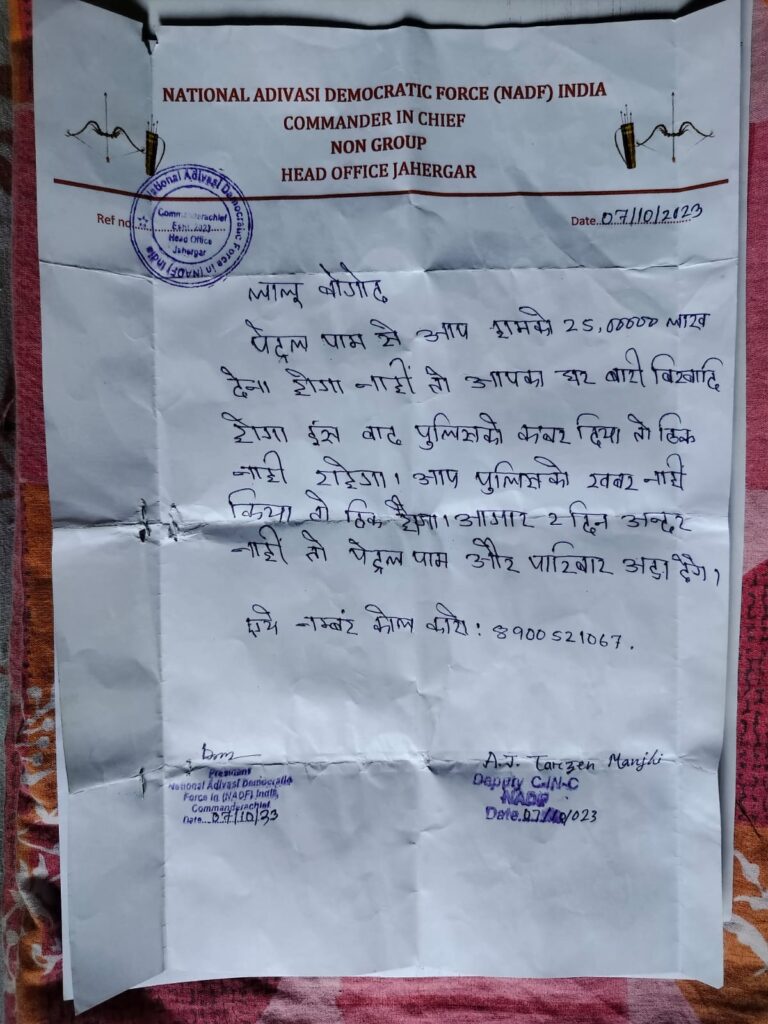 NATIONAL ADIVASI DEMOCRATIC FORCE (NADF) INDIA
COMMANDER IN CHIEF
NON GROUP
HEAD OFFICE JAHERGAR
National Adivasi Democratic Force in (NADF) India
Commanderachief
Estd. 2023
Head Office
Jahergar
Ref no.
Date..07/10/2023
लालू बोगोट
पेट्रल पाम से आप हामको 25,00000 लाख
देना होगा नाहीं तो आपका घर बारी बिरबादि
होगा ईस बाद पुलिसको कबर दिया तो ठिक
नाही राहेगा। आप पुलिसको खबर नाही
किया तो ठिक हैगा। आगार 2 दिन अन्दर
नाहीं तो पेट्रल पाम और पारिबार अड़ा देंगे।
एये नम्बंर कोल कारो: 8900521067.
President
National Adivasi Democratic
Force in (NADF) India,
Commanderachief
Date...07/10/23
A.J. Tarzen Manjhi
Deputy C-IN-C
NADF
Date.07/10/023